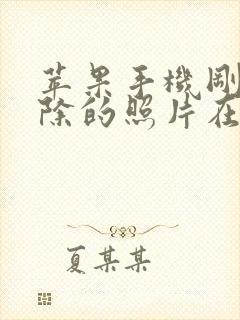 苹果手機剛
除的照片在
夏某某